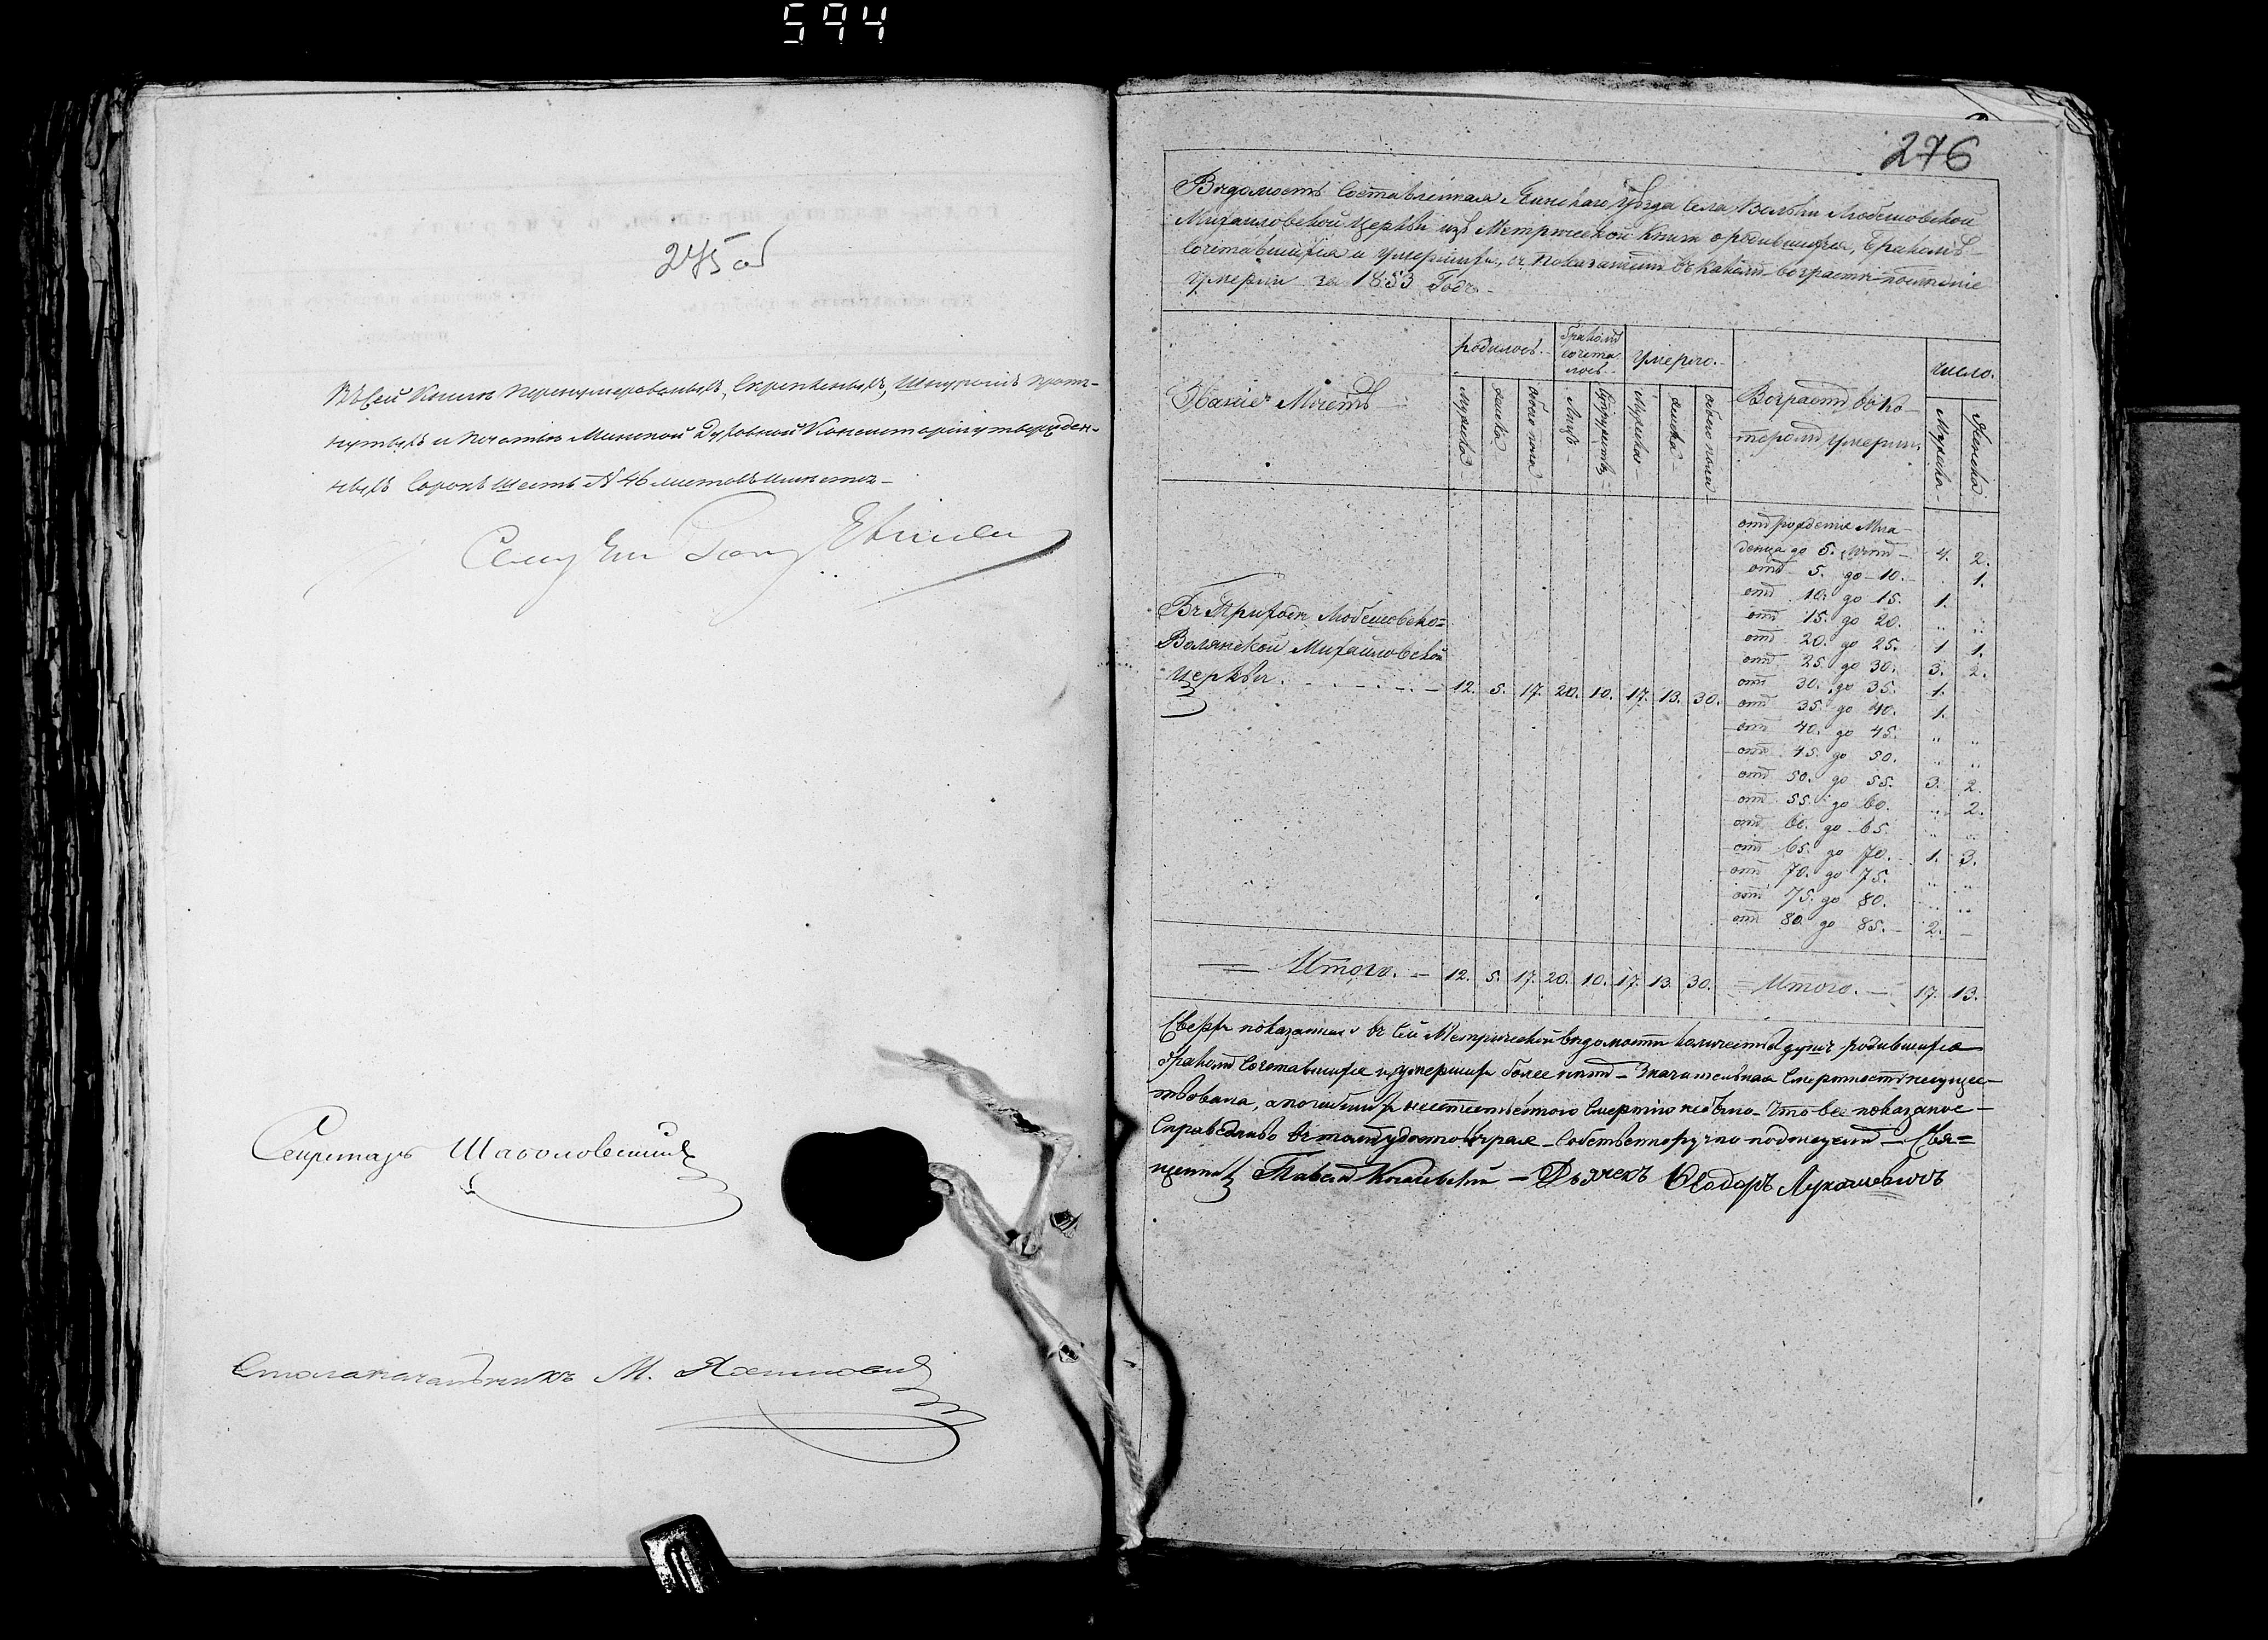 594
275 об
Въ сей Книгѣ перенумерованныхъ, скрепленныхъ, шнуромъ протя-
нутыхъ и печатью Минской Духовной Консисторіи утвержден-
ныхъ сорокъ шесть № 46 листовъ имѣется
Секретарь Шаболовскій
Столоначальникъ М.
276
Вѣдомость составленная Пинскаго уѣзда села Вольки Любешовской
Михайловской Церкви изъ Метрической Книги о родившихся, бракомъ
сочетавшихся и умершихъ, съ показаніемъ въ какомъ возрастѣ послѣдніе
умерли за 1853 Годъ.
родилось. бракомъ сочета лось умерло. число.
Званіе Мѣстъ Возрастъ въ ко-
теромъ умерли.
Мужеска женска обоего пола Лицъ Супружествъ Мужеска женска обоего пола Мужеска Женска
отъ рожденія Мла-
денца до 5. лѣтъ 4. 2.
отъ 5. до 10. 1.
отъ 10. до 15. 1.
отъ 15. до 20. „ „
отъ 20. до 25. 1. 1.
отъ 25. до 30. 3. 2.
отъ 30. до 35. 1.
отъ 35. до 40. 1.
отъ 40. до 45. „ „
отъ 45. до 50. „ „
отъ 50. до 55. 3. 2.
отъ 55. до 60. „ 2.
отъ 60. до 65. „ „
отъ 65. до 70. 1. 3.
отъ 70. до 75. „ „
отъ 75. до 80. „ „
отъ 80. до 85. 2. –
Въ Приходѣ Любешовско=
Волянской Михайловской
Церкви. 12. 5. 17. 20. 10. 17. 13. 30.
Итого. 12. 5. 17. 20. 10. 17. 13. 30. Итого. 17. 13.
Сверхъ показаннаго въ сей Метрической вѣдомости количества душъ родившихся
бракомъ сочетавшихся и умершихъ болѣе нѣтъ – Значительная смертность несущес-
твовала, а погибшихъ неестественною смертію небыло – Что все показаное
справедливо въ томъ удостовѣряя собственноручно подпишемъ – Свя=
щенникъ Павелъ – Дьячекъ Ѳеодоръ Лукашевичъ